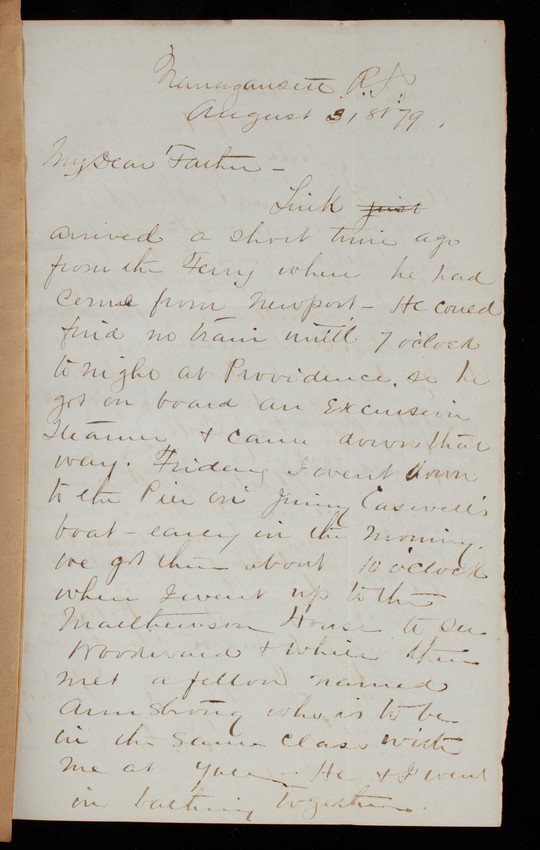 Narragansett R.I.
August 31st 79.
My Dear Father -
Link just
arrived a short time ago
from the Ferry when he had
come from Newport - He could
find no train until 7 o'clock
to night at Providence. so he
got on board an Excursion
Steamer & came down that
way. Friday I went down
to the Pier on Jimmy Caswell's
boat - early in the morning.
We got there about 10 o'clock
when I went up to the
Matthewson House to see
Woodward & while there
met a fellow named
Armstrong who is to be
in the same class with
me at Yale - He & I went
in bathing together.